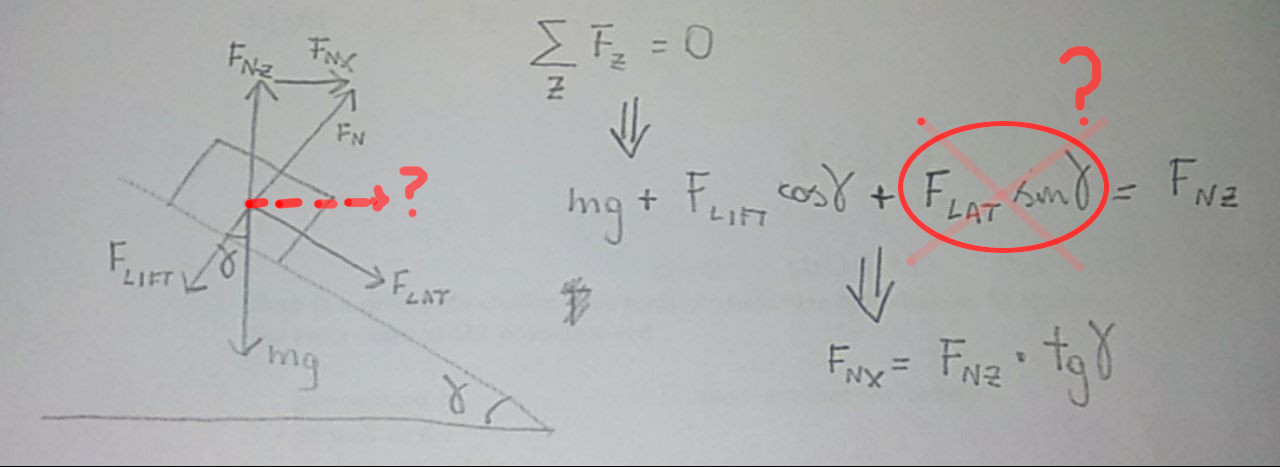 F_NZ F_NX
F_N
F_LIFT γ
F_LAT
mg
γ
?
∑_Z F̄_Z = 0
⇓
?
mg + F_LIFT cosγ + F_LAT sinγ = F_NZ
⇓
F_NX = F_NZ · tgγ